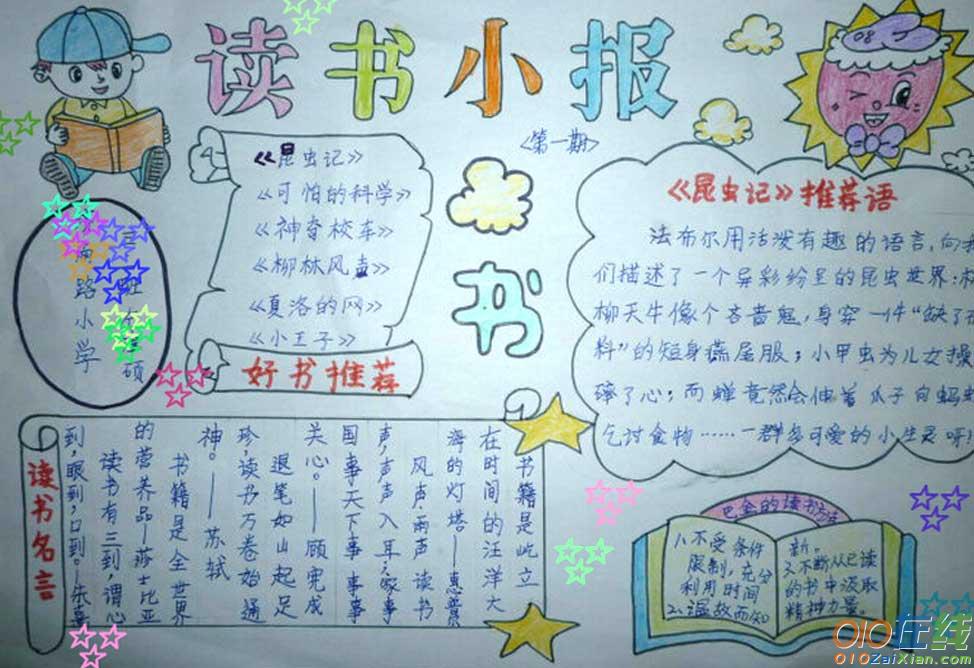 读书小报
<第一期>
《昆虫记》
《可怕的科学》
《神奇校车》
《柳林风声》
《夏洛的网》
《小王子》
好书推荐
书
路小学
硕
《昆虫记》推荐语
法布尔用活泼有趣的语言,向我
们描述了一个异彩纷呈的昆虫世界:
柳天牛像个吝啬鬼,身穿一件“缺了布
料”的短身燕尾服;小甲虫为儿女操
碎了心;而蝉竟然会伸着爪子向蚂蚁
乞讨食物……一群多可爱的小生灵呀
读书名言
书籍是屹立
在时间的汪洋大
海的灯塔。—惠普
风声雨声读书
声,声声入耳;家事
国事天下事事事
关心。——顾宪成
退笔如山起足
珍,读书万卷始通
神。——苏轼
书籍是全世界
的营养品—莎士比亚
读书有三到,谓心
到,眼到,口到。—朱熹
巴金的读书方法
1、不受条件
限制,充分
利用时间
2、温故而知
新。
3、不断从已读
的书中汲取
精神力量。
08
010在线
010ZaiXian.com